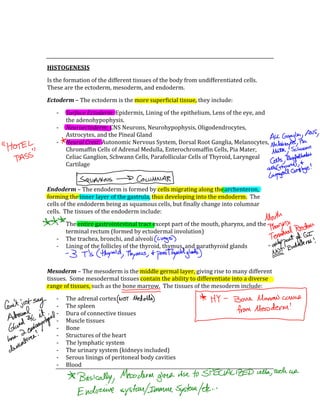 HISTOGENESIS
Is the formation of the different tissues of the body from undifferentiated cells.
These are the ectoderm, mesoderm, and endoderm.
Ectoderm – The ectoderm is the more superficial tissue, they include:
- Surface Ectoderm: Epidermis, Lining of the epithelium, Lens of the eye, and
the adenohypophysis.
- Neuroectoderm: CNS Neurons, Neurohypophysis, Oligodendrocytes,
Astrocytes, and the Pineal Gland
- Neural Crest: Autonomic Nervous System, Dorsal Root Ganglia, Melanocytes,
Chromaffin Cells of Adrenal Medulla, Enterochromaffin Cells, Pia Mater,
Celiac Ganglion, Schwann Cells, Parafollicular Cells of Thyroid, Laryngeal
Cartilage
"HOTEL
PASS"
All Ganglia, ANS,
Melanocytes, Pia
Mater, Schwann
Cells, Parafollicular
Laryngeal Cartilage!
SQUAMOUS → COLUMNAR
Endoderm – The endoderm is formed by cells migrating along the archenteron,
forming the inner layer of the gastrula, thus developing into the endoderm. The
cells of the endoderm being as squamous cells, but finally change into columnar
cells. The tissues of the endoderm include:
- The entire gastrointestinal tract except part of the mouth, pharynx, and the
terminal rectum (formed by ectodermal involution)
- The trachea, bronchi, and alveoli (Lungs)
- Lining of the follicles of the thyroid, thymus, and parathyroid glands
- 3 T's (thyroid, Thymus, + paraThyroid glands)
Mouth
Pharynx
Terminal Rectum
- only part of GIT
NOT Endoderm!
Mesoderm – The mesoderm is the middle germal layer, giving rise to many different
tissues. Some mesodermal tissues contain the ability to differentiate into a diverse
range of tissues, such as the bone marrow. The tissues of the mesoderm include:
- The adrenal cortex (NOT Medulla)
- The spleen
- Dura of connective tissues
- Muscle tissues
- Bone
- Structures of the heart
- The lymphatic system
- The urinary system (kidneys included)
- Serous linings of peritoneal body cavities
- Blood
* HY - Bone Marrow comes
from Mesoderm!
Can't just say
Adrenal
Gland
2 embryological
derivatives!
* Basically, Mesoderm gives rise to SPECIALIZED cells, such as
Endocrine system/Immune System/etc..